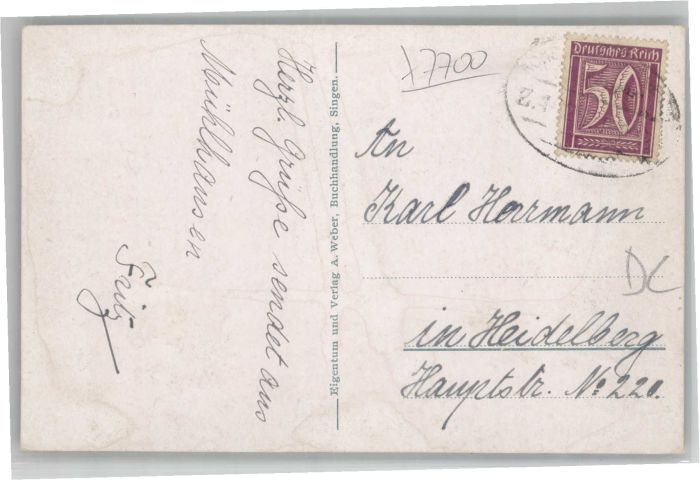 Herzl. Grüße sendet aus
Mühlhausen
Fritz
Eigentum und Verlag A. Weber, Buchhandlung, Singen.
x7700
Deutsches Reich
50
An
Karl Hormann
DC
in Heidelberg
Hauptstr. No 220.